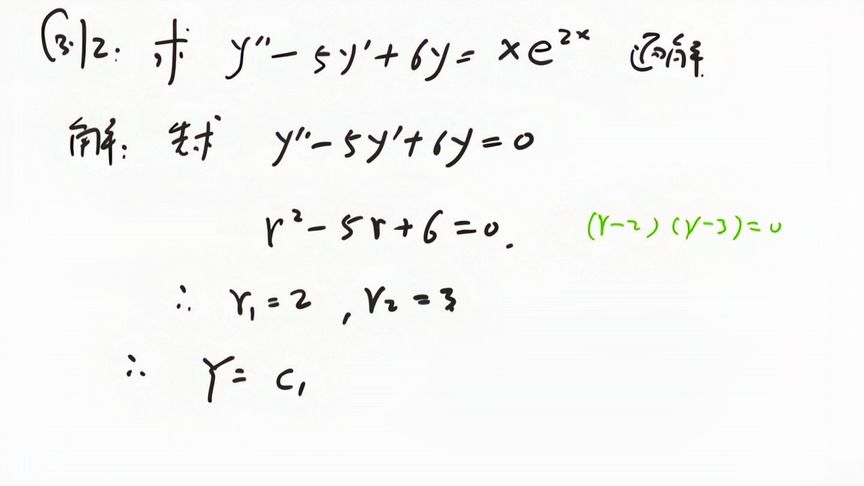 例2: 求 y'' - 5y' + 6y = xe^{2x} 通解
解: 先求 y'' - 5y' + 6y = 0
r² - 5r + 6 = 0. (r-2)(r-3)=0
∴ r₁ = 2 , r₂ = 3
∴ Y = c₁